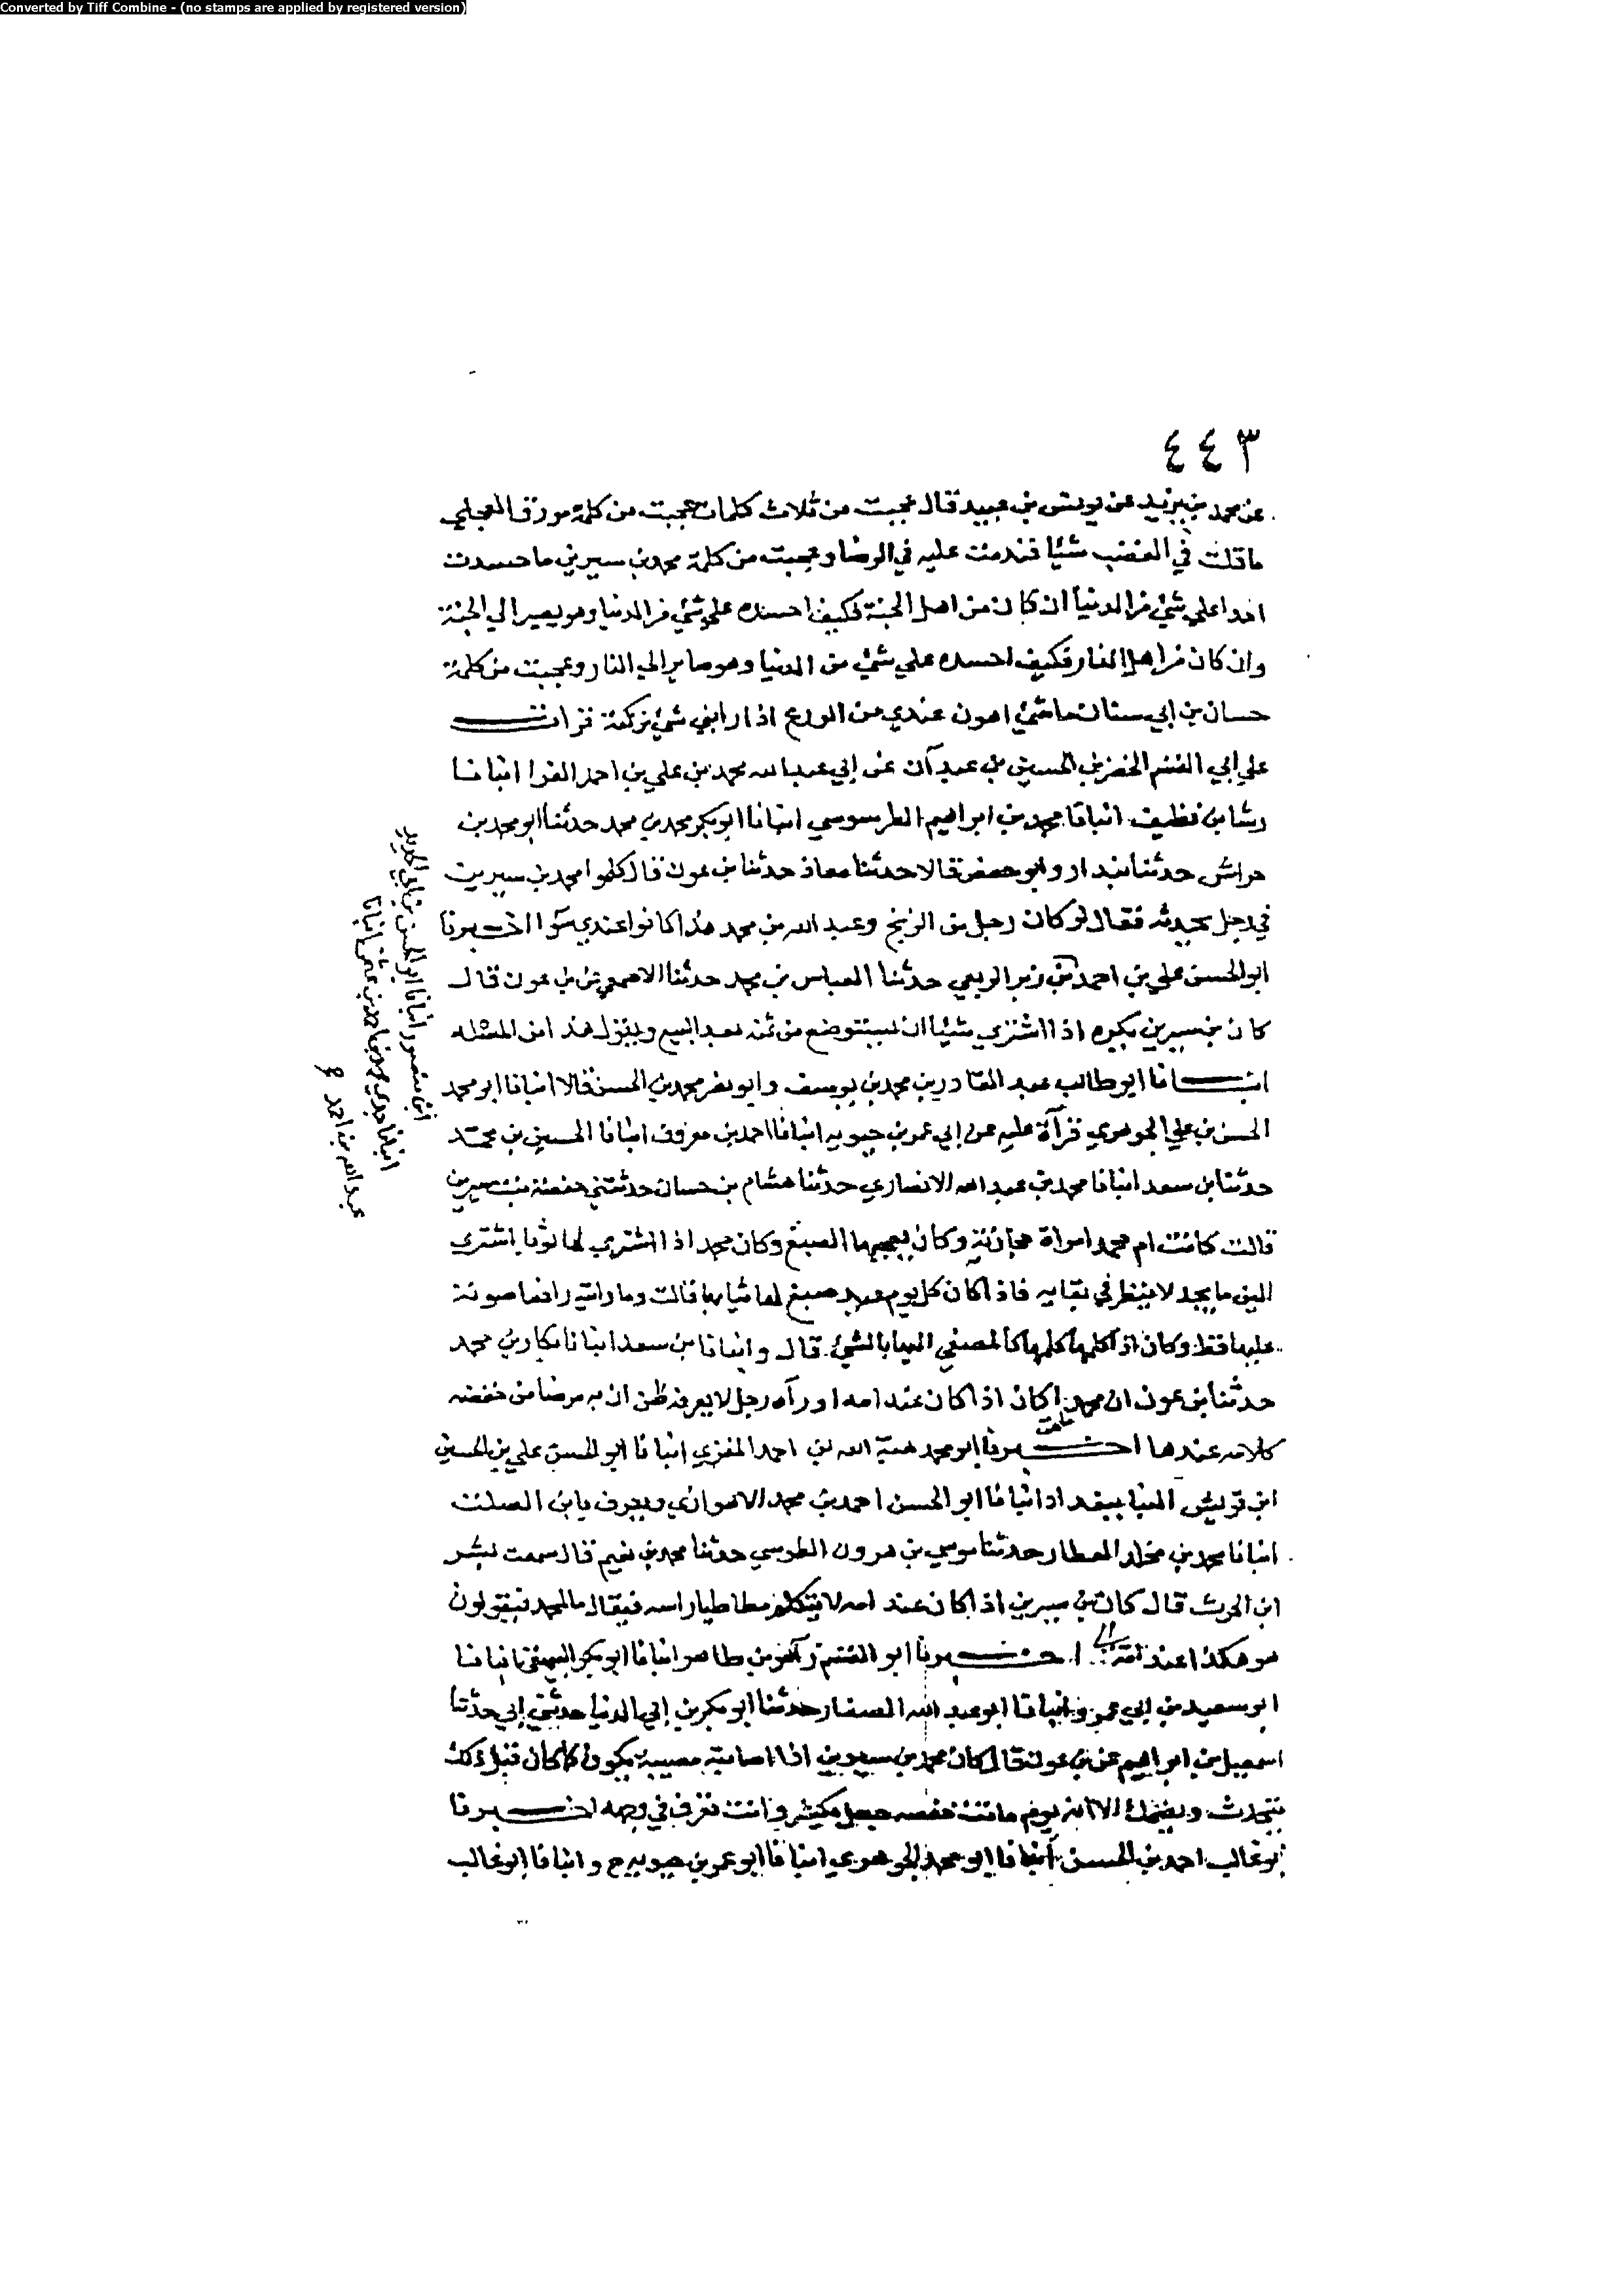 Converted by Tiff Combine - (no stamps are applied by registered version)
٤٤٣
عن محمد بن يزيد عن يونس بن عبيد قال عجبت من ثلاث كلمات عجبت من كلمة مورق العجلي
ما قلت في الغضب شيئا فندمت عليه في الرضا وعجبت من كلمة محمد بن سيرين ما حسدت
احدا علي شئ من الدنيا ان كان من اهل الجنة فكيف احسده علي شئ من الدنيا وهو يصير الي الجنة
وان كان من اهل النار فكيف احسده علي شئ من الدنيا وهو صاير الي النار وعجبت من كلمة
حسان بن ابي سنان ما شئ اهون عندي من الورع اذا رابني شئ تركته قرات
علي ابي القسم الخضر بن الحسين بن عبدان عن ابي عبد الله محمد بن علي بن احمد الفرا انبانا
رشا بن نظيف انبانا محمد بن ابراهيم الطرسوسي انبانا ابو بكر محمد بن محمد حدثنا ابو محمد بن
خراش حدثنا بندار وابو حفص قالا حدثنا معاذ حدثنا بن عون قال كلموا محمد بن سيرين
في رجل يحدثه فقال لو كان رجل من الزنج وعبد الله بن محمد هذا كانوا عندي سوا اخبرنا
ابو الحسن علي بن احمد بن زبر الربعي حدثنا العباس بن محمد حدثنا الاصمعي عن بن عون قال
كان بن سيرين يكره اذا اشتري شيئا ان يستوضع من ثمنه بعد البيع ويقول هذا من المسئله
انبانا ابو طالب عبد القادر بن محمد بن يوسف وابو نصر محمد بن الحسن قالا انبانا ابو محمد
الحسن بن علي الجوهري قرآة عليه عن ابي عمر بن حيويه انبانا احمد بن معروف انبانا الحسين بن محمد
حدثنا بن سعد انبانا محمد بن عبد الله الانصاري حدثنا هشام بن حسان حدثتني حفصة بنت سيرين
قالت كانت ام محمد امراة حجازية وكان يعجبها الصبغ وكان محمد اذا اشتري لها ثوبا اشتري
الين ما يجد لا ينظر في بقايه فاذا كان كل يوم عيد صبغ لها ثيابها قالت وما رايته رافعا صوته
عليها قط وكان اذا كلمها كلمها كالمصغي اليها بالشئ قال وانبانا بن سعد انبانا بكار بن محمد
حدثنا بن عون ان محمدا كان اذا كان عند امه لو رآه رجل لا يعرفه ظن ان به مرضا من خفضه
كلامه عندها اخبرنا ابو محمد هبة الله بن احمد المقري انبانا ابو الحسن علي بن الحسين
ابن قريش البنا ببغداد انبانا ابو الحسن احمد بن محمد الاهوازي ويعرف بابن الصلت
انبانا محمد بن مخلد العطار حدثنا موسي بن هرون الطوسي حدثنا محمد بن نعيم قال سمعت بشر
ابن الحرث قال كان بن سيرين اذا كان عند امه لا يتكلم مطاطيا راسه فيقال ما لمحمد فيقولون
هو هكذا عند امه اخبرنا ابو القسم زاهر بن طاهر انبانا ابو بكر البيهقي انبانا
ابو سعيد بن ابي عمرو انبانا ابو عبد الله الصفار حدثنا ابو بكر بن ابي الدنيا حدثني ابي حدثنا
اسمعيل بن ابراهيم عن بن عون قال كان محمد بن سيرين اذا اصابته مصيبة يكون كما كان قبل ذلك
يتحدث ويضحك الا انه يوم ماتت حفصه جعل يكشر وانت تعرف في وجهه اخبرنا
ابو غالب احمد بن الحسن انبانا ابو محمد الجوهري انبانا ابو عمر بن حيويه ح وانبانا ابو غالب
ابن منصور انبانا ابو الحسن بن ابي الحديد
انبانا جدي محمد بن احمد بن عثمن انبانا
عبد الله بن احمد